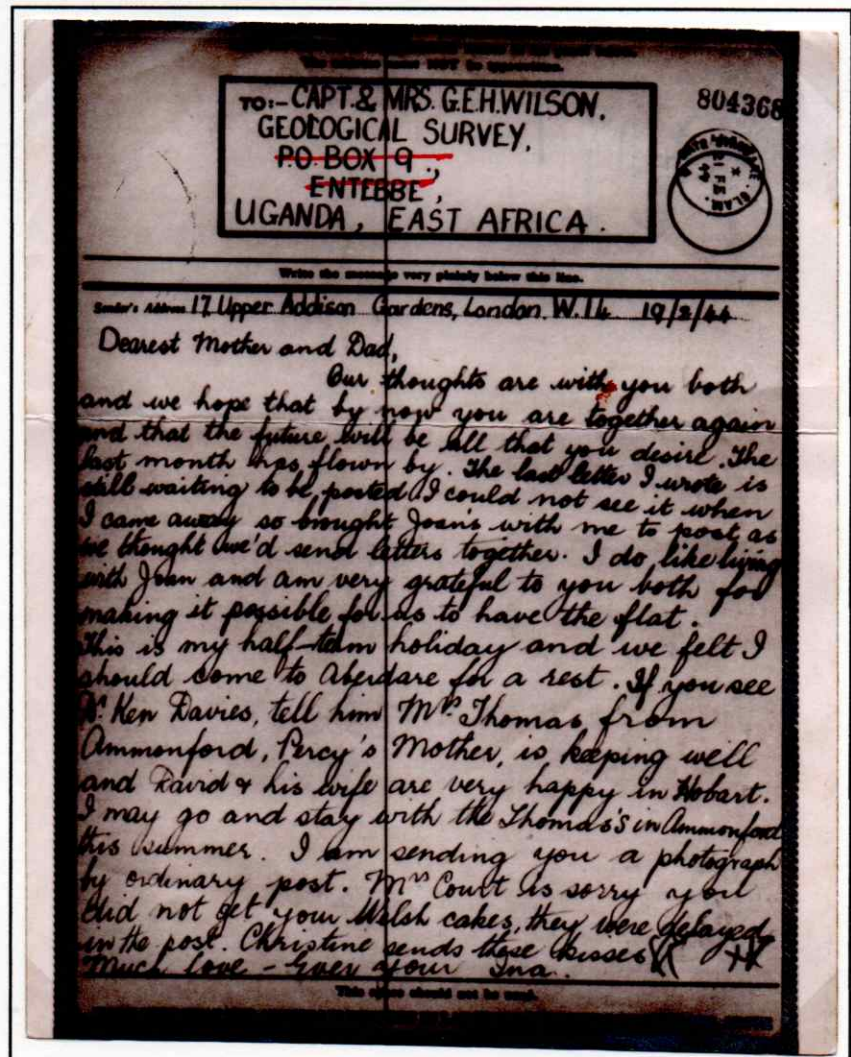 NOT
TO:- CAPT. & MRS. G.E.H. WILSON,
GEOLOGICAL SURVEY,
P.O. BOX 9,
ENTEBBE,
UGANDA, EAST AFRICA.
804368
21 FEB
44
GLAM.
Write the message very plainly below this line.
Sender's Address 17 Upper Addison Gardens, London. W.14 19/2/44
Dearest Mother and Dad,
Our thoughts are with you both
and we hope that by now you are together again
and that the future will be all that you desire. The
last month has flown by. The last letter I wrote is
still waiting to be posted I could not see it when
I came away so brought Joan's with me to post as
we thought we'd send letters together. I do like living
with Joan and am very grateful to you both for
making it possible for us to have the flat.
This is my half-term holiday and we felt I
should come to Aberdare for a rest. If you see
Dr. Ken Davies, tell him Mrs. Thomas from
Ammonford, Percy's Mother, is keeping well
and David & his wife are very happy in Hobart.
I may go and stay with the Thomas's in Ammonford
this summer. I am sending you a photograph
by ordinary post. Mrs Court is sorry you
did not get your Welsh cakes, they were delayed
in the post. Christine sends these kisses XX XX
Much love - Ever your Ina.
This space should not be used.